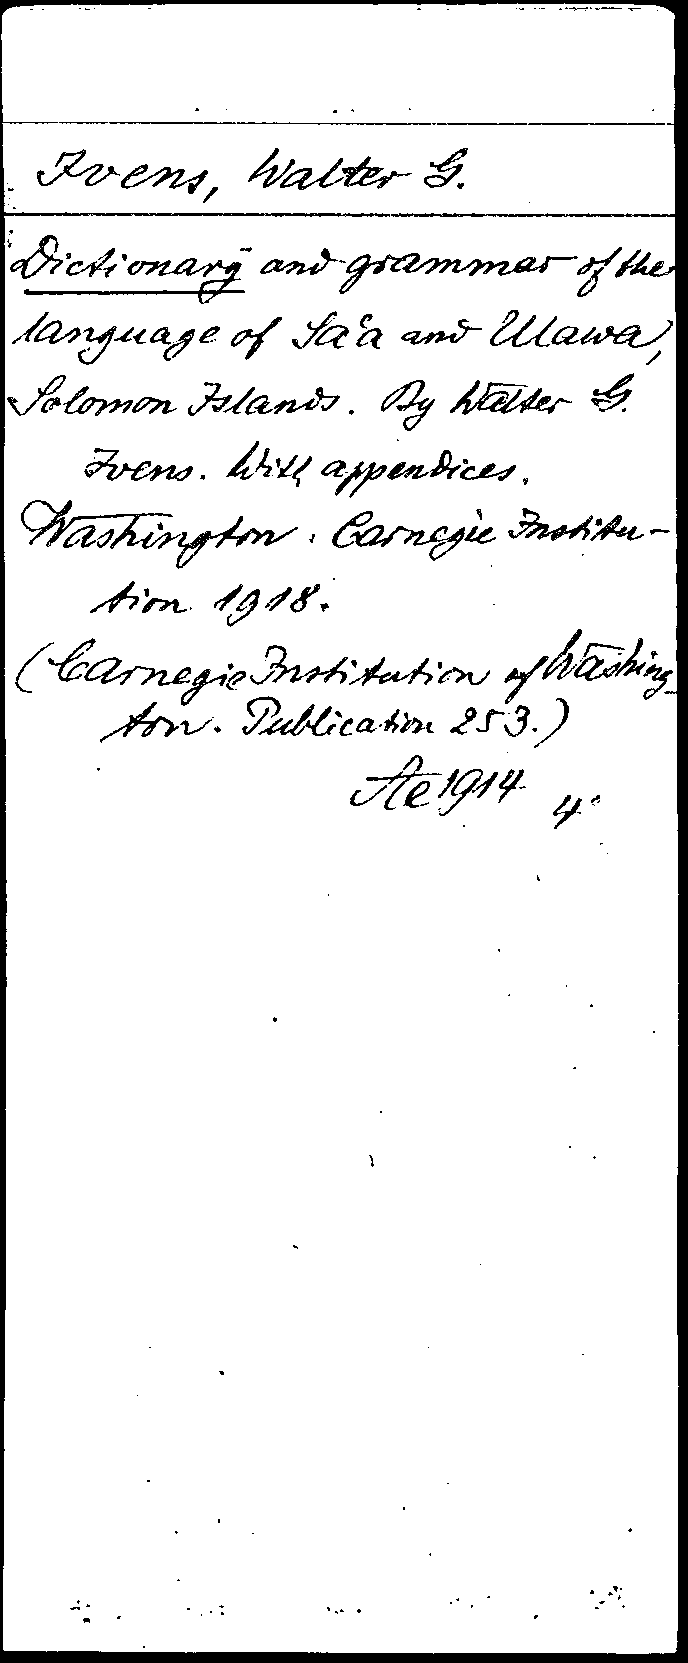 Ivens, Walter G.
Dictionary and grammar of the
language of Sa'a and Ulawa,
Solomon Islands. By Walter G.
Ivens. With appendices.
Washington. Carnegie Institu-
tion 1918.
(Carnegie Institution of Washing-
ton. Publication 253.)
Ae 1914 4°